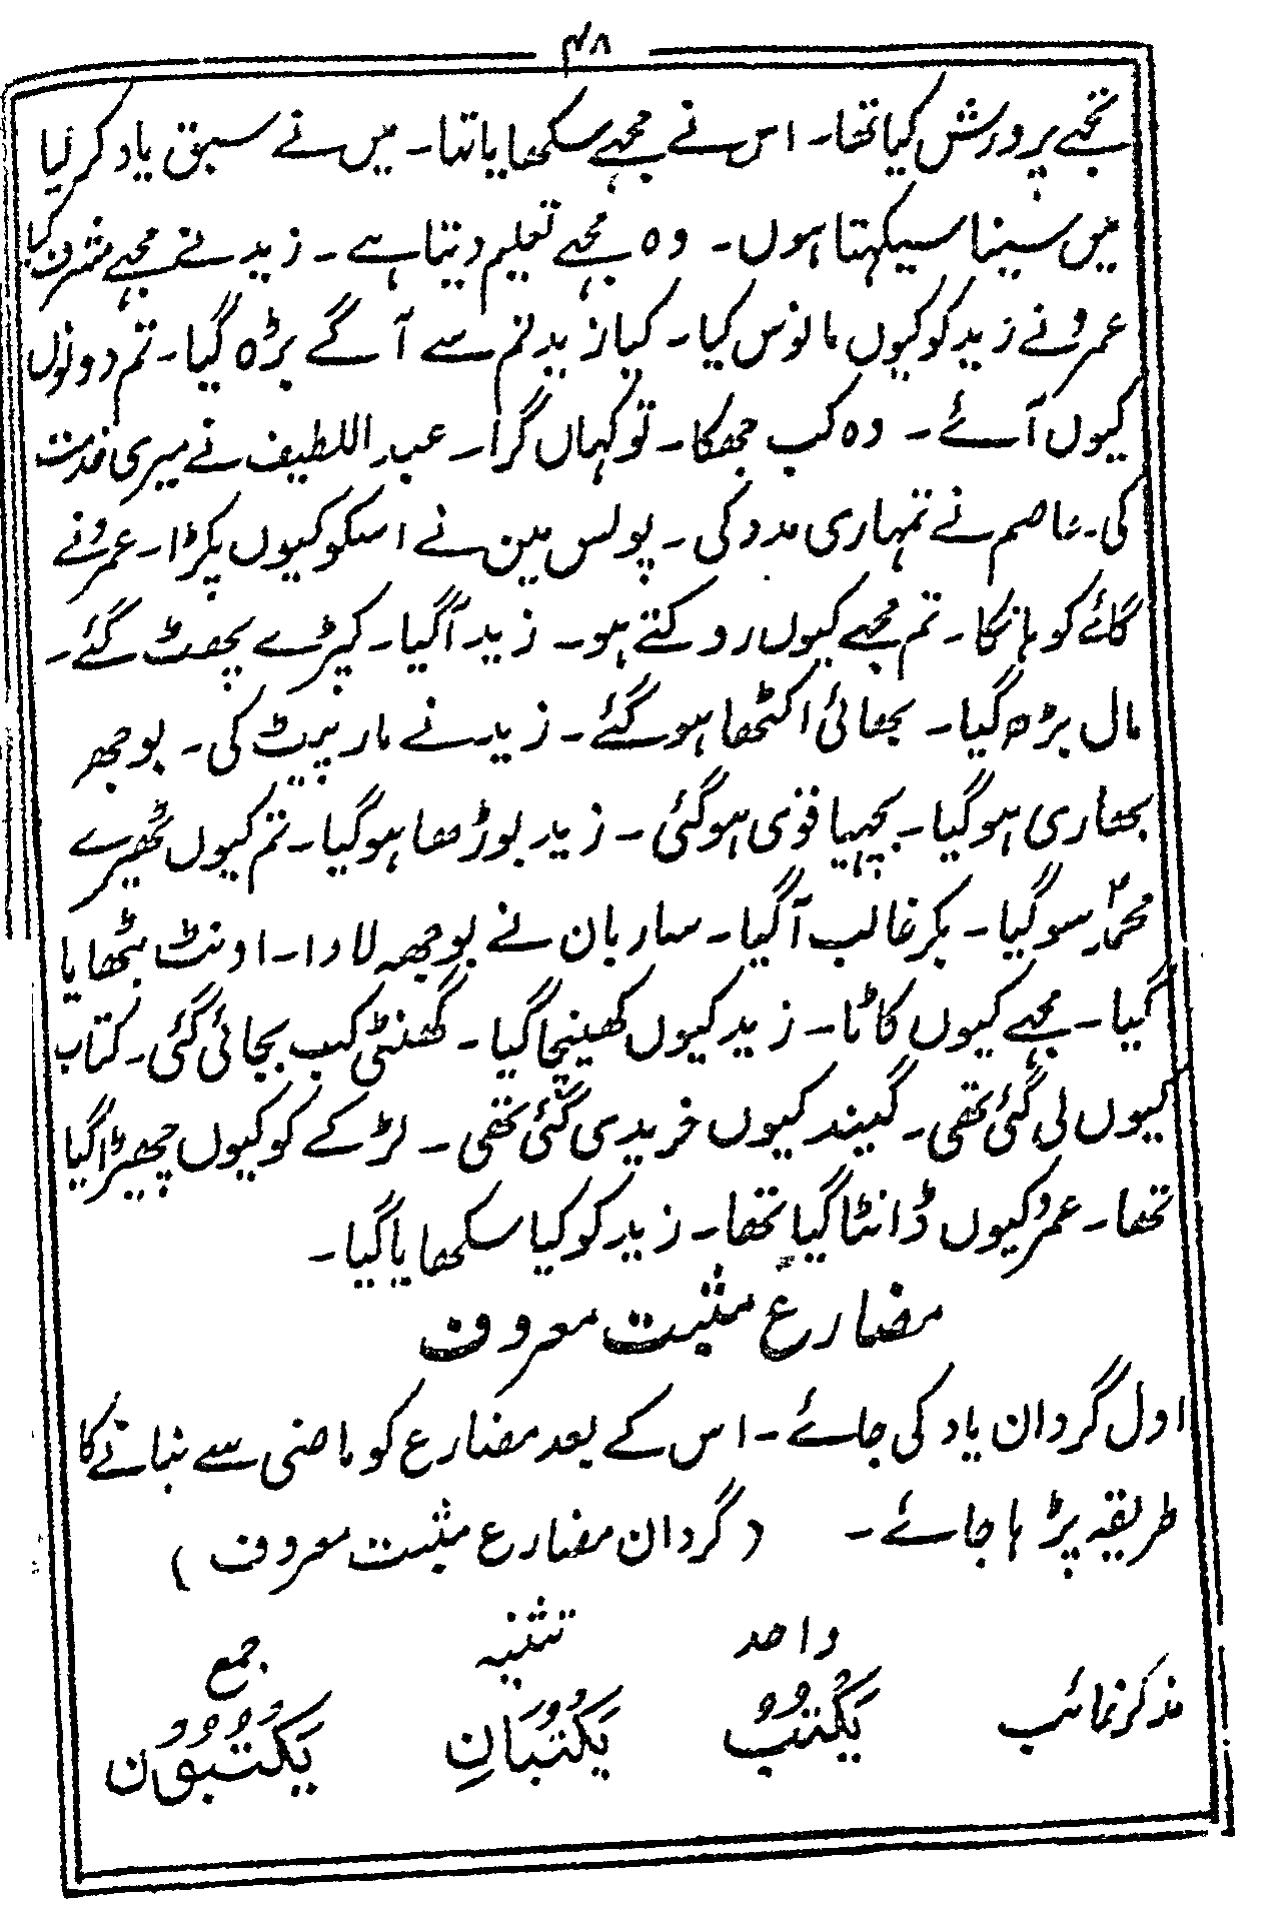 ۴۸
تجھے پرورش کیا تھا۔ اس نے مجھے سکھایا تہا۔ میں نے سبق یاد کر لیا
میں سینا سیکہتا ہوں۔ وہ مجھے تعلیم دیتا ہے۔ زید نے مجھے مشرف کیا
عمرو نے زید کو کیوں مانوس کیا۔ کیا زید تم سے آگے بڑہ گیا۔ تم دونوں
کیوں آئے۔ وہ کب جھکا۔ تو کہاں گرا۔ عبد اللطیف نے میری خدمت
کی۔ عاصم نے تمہاری مدد کی۔ پولس مین نے اسکو کیوں پکڑا۔ عمرو نے
گائے کو ہانکا۔ تم مجھے کیوں روکتے ہو۔ زید آگیا۔ کپڑے پھٹ گئے۔
مال بڑھ گیا۔ بھائی اکٹھا ہو گئے۔ زید نے مار پیٹ کی۔ بوجھ
بھاری ہو گیا۔ بچہیا قوی ہو گئی۔ زید بوڑھا ہو گیا۔ تم کیوں ٹھیرے
محمد سو گیا۔ بکر غالب آگیا۔ ساربان نے بوجھ لادا۔ اونٹ بٹھایا
گیا۔ مجھے کیوں کاٹا۔ زید کیوں کھینچا گیا۔ گھنٹی کب بجائی گئی۔ کتاب
کیوں لی گئی تھی۔ گیند کیوں خریدی گئی تھی۔ لڑکے کو کیوں چھیڑا گیا
تھا۔ عمرو کیوں ڈانٹا گیا تھا۔ زید کو کیا سکھایا گیا۔
مضارع مثبت معروف
اول گردان یاد کی جائے۔ اس کے بعد مضارع کو ماضی سے بنانے کا
طریقہ پڑہا جائے۔ (گردان مضارع مثبت معروف)
واحد تثنیہ جمع
مذکر غائب يَكْتُبُ يَكْتُبَانِ يَكْتُبُوْنَ